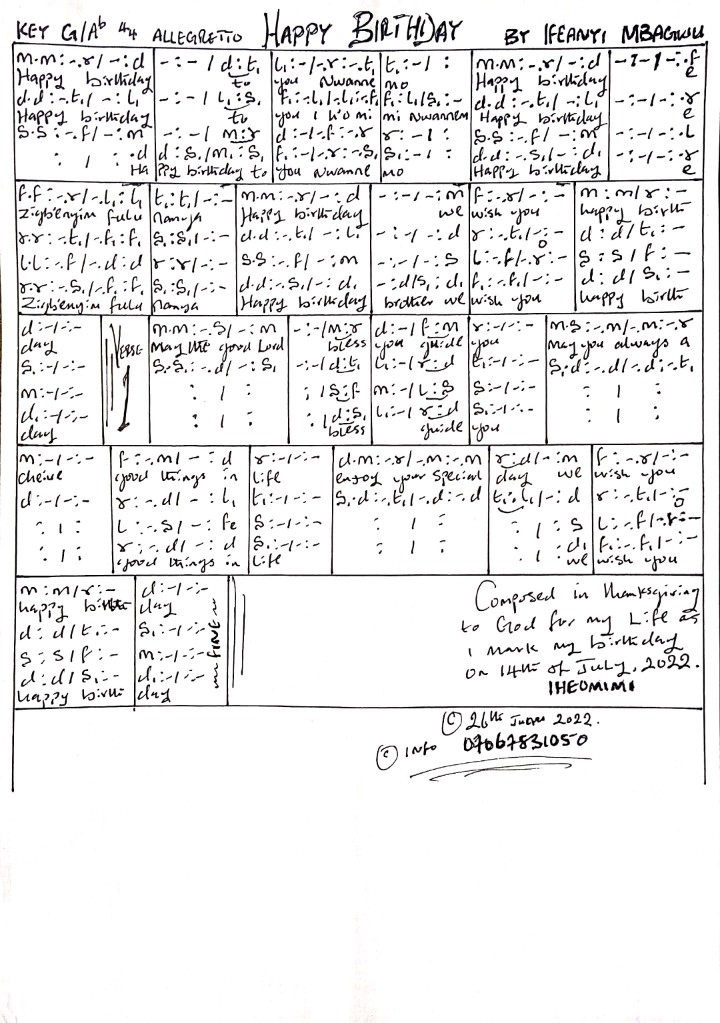 KEY G/Ab 4/4 ALLEGRETTO HAPPY BIRTHDAY BY IFEANYI MBAGWU
m.m:-.r/-:d -:-/d:t, l,:-/-.r:-.t, t,:-/ : m.m:-.r/-:d -:-/-:.f
Happy birthday to you Nwanne mo Happy birthday e
d.d:-.t,/-:l, -:-/l,:s, d.d:-.t,/-:l, -:-/-:.r
Happy birthday to you Happy birthday e
s.s:-.f/-:m -:-/m:r d:-/-f:-.r r:-/ : s.s:-.f/-:m -:-/-:.l
: / :.d d:s,/m,:s, f,:-/-.r:-.s, s,:-/ : d.d:-.s,/-:d, -:-/-:.r
Ha ppy birthday to you Nwanne mo Happy birthday e
f.f:-.r/-.l,:l, t,:t,/-:- m.m:-.r/-:d -:-/-:m f:-.r/-:- m:m/r:-
Zigbenyim fulu nanya Happy birthday we wish you happy birth
r.r:-.t,/-.f,:f, s,:s,/-:- d.d:-.t,/-:l, -:-/-:d r:-.t,/-:- d:d/t,:-
l.l:-.f/-.d:d r:r/-:- s.s:-.f/-:m -:-/-:s l:-.f/-.r:- s:s/f:-
r.r:-.s,/-.f,:f, s,:s,/-:- d.d:-.s,/-:d, -:d/s,:d, f,:-.f,/-:- d:d/s,:-
Zigbenyim fulu nanya Happy birthday brother we wish you happy birth
d:-/-:- VERSE 1 m.m:-.s/-:m -:-/m:r d:-/f:m r:-/-:- m.s:-.m/-.m:-.r
day May the good Lord bless you guide you May you always a
s,:-/-:- s,.s,:-.d/-:s, -:-/d:t, l,:-/r:d t,:-/-:- s,.d:-.d/-.d:-.t,
m:-/-:- : / : : /s:f m:-/l:s s:-/-:- : / :
d,:-/-:- : / : : /d:s, l,:-/r:d s,:-/-:- : / :
day bless guide you
m:-/-:- f:-.m/-:d r:-/-:- d.m:-.r/-.m:-.m r:d/-:m f:-.r/-:-
cheive good things in life enjoy your special day we wish you
d:-/-:- r:-.d/-:l, t,:-/-:- s,.d:-.t,/-.d:-.d t,:l,/-:d r:-.t,/-:-
: / : l:-.s/-:fe s:-/-:- : / : : / :s l:-.f/-.r:-
: / : r:-.d/-:d s,:-/-:- : / : : / :d, f,:-.f,/-:-
good things in life we wish you
m:m/r:- d:-/-:-
happy birth day
d:d/t,:- s,:-/-:- FINE
s:s/f:- m:-/-:-
d:d/s,:- d,:-/-:-
happy birth day
Composed in thanksgiving
to God for my Life as
I mark my birthday
on 14th of July, 2022.
IHEOMIMI
© 26th 2022.
© INFO 07067831050